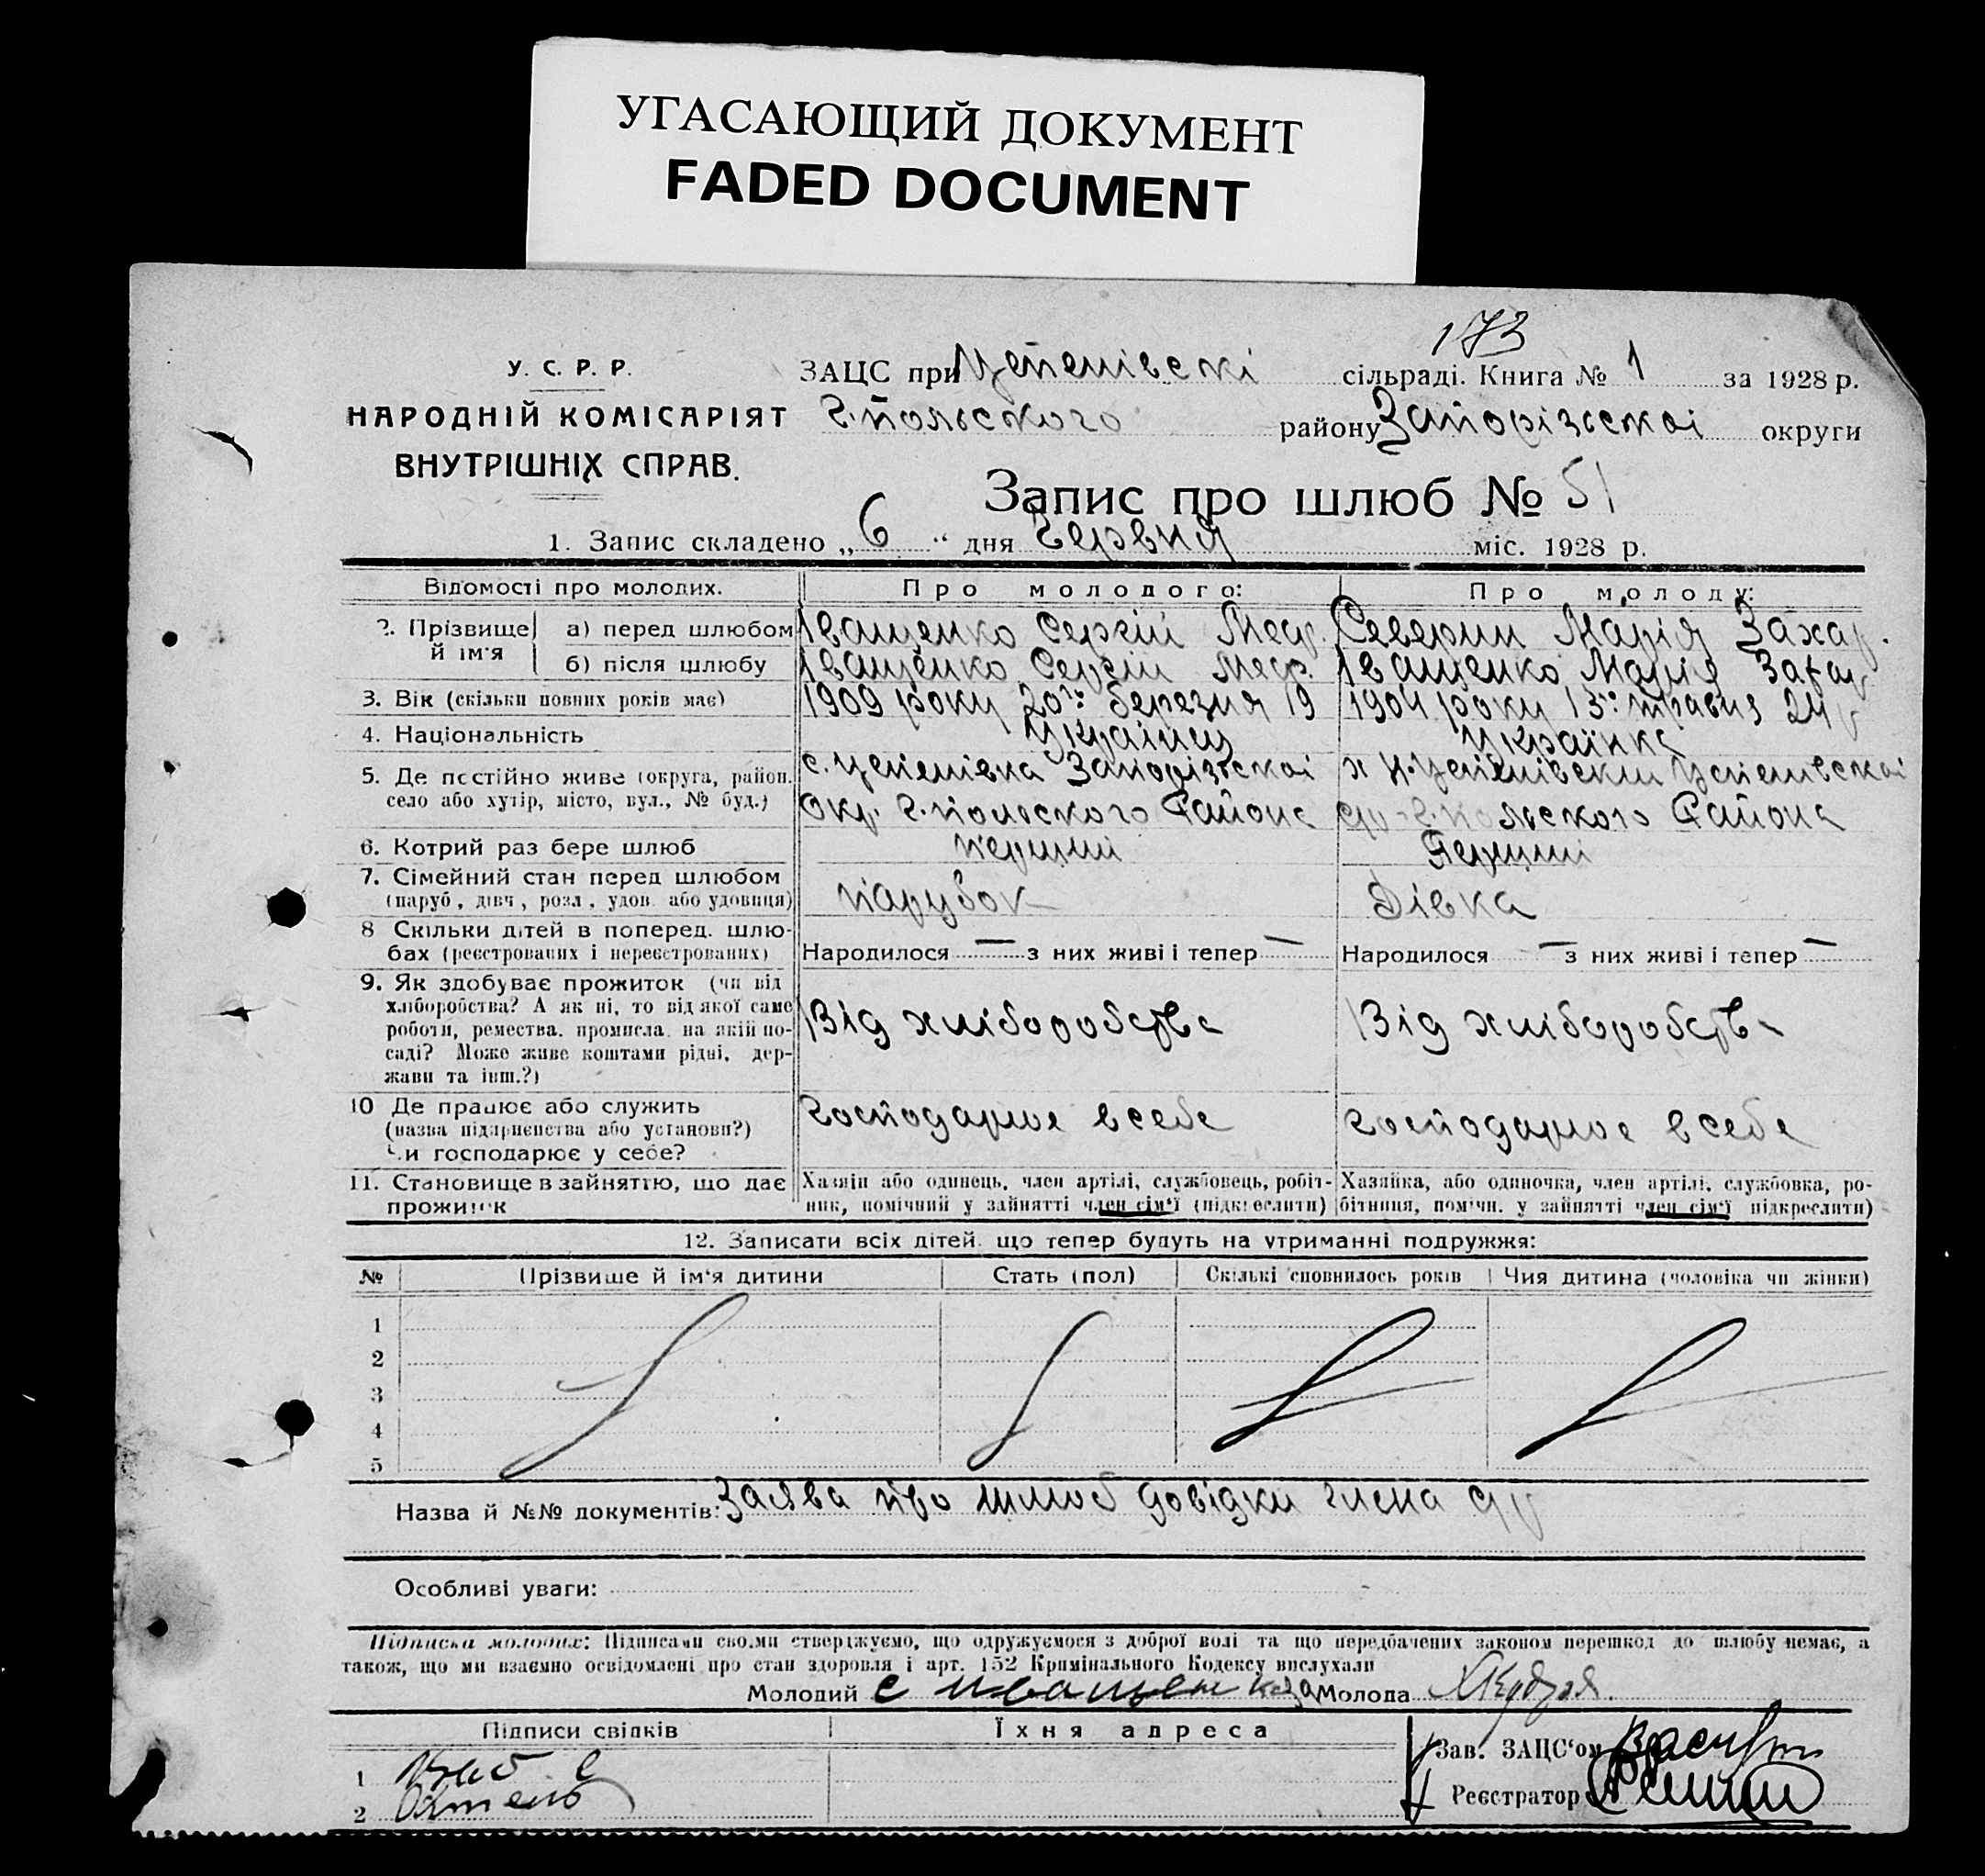 УГАСАЮЩИЙ ДОКУМЕНТ
FADED DOCUMENT
173
У. С. Р. Р.
НАРОДНІЙ КОМІСАРІЯТ
ВНУТРІШНІХ СПРАВ.
ЗАЦС при Успенівскі сільраді. Книга № 1 за 1928 р.
Г.Польского району Запорізьскоі округи
Запис про шлюб № 51
1. Запис складено „6“ дня Червня міс. 1928 р.
Відомості про молодих. Про молодого: Про молоду:
2. Прізвище й ім'я
а) перед шлюбом Іващенко Сергій Северин Марія Захар.
б) після шлюбу Іващенко Сергій Іващенко Марія Захар
3. Вік (скільки повних років має) 1909 року 20го березня 19 1904 року 13го травня 24 р
4. Національність Українец Українка
5. Де постійно живе (округа, район, с. Успенівка Запорізьскоі х Успенівскоі
село або хутір, місто, вул., № буд.) Окр. Г.Польского Района с/р Г.Польского Района
6. Котрий раз бере шлюб Перший Перший
7. Сімейний стан перед шлюбом парубок Дівка
(паруб., дівч., розл., удов. або удовиця)
8 Скільки дітей в поперед. шлю-
бах (реєстрованих і нереєстрованих) Народилося — з них живі і тепер — Народилося — з них живі і тепер —
9. Як здобуває прожиток (чи від
хліборобства? А як ні, то від якої саме Від хліборобства Від хліборобства
роботи, ремества, промисла, на якій по-
саді? Може живе коштами рідні, дер-
жави та інш.?)
10 Де працює або служить Господарює в себе Господарює в себе
(назва підприємства або установи?)
Чи господарює у себе?
11. Становище в зайняттю, що дає Хазяїн або одинець, член артілі, службовець, робіт- Хазяйка, або одиночка, член артілі, службовка, ро-
прожиток ник, помічний у зайнятті член сім'ї (підкреслити) бітниця, помічн. у зайнятті член сім'ї підкреслити)
12. Записати всіх дітей, що тепер будуть на утриманні подружжя:
№ Прізвище й ім'я дитини Стать (пол) Скількі сповнилось років Чия дитина (чоловіка чи жінки)
1
2
3
4
5
Назва й №№ документів: Заява про шлюб довідки члена с/р
Особливі уваги:
Підписка молодих: Підписами своїми стверджуємо, що одружуємося з доброї волі та що передбачених законом перешкод до шлюбу немає, а
також, що ми взаємно освідомлені про стан здоровля і арт. 152 Кримінального Кодексу вислухали
Молодий С Молода
Підписи свідків Їхня адреса Зав. ЗАЦС'ом
1
2 Реєстратор